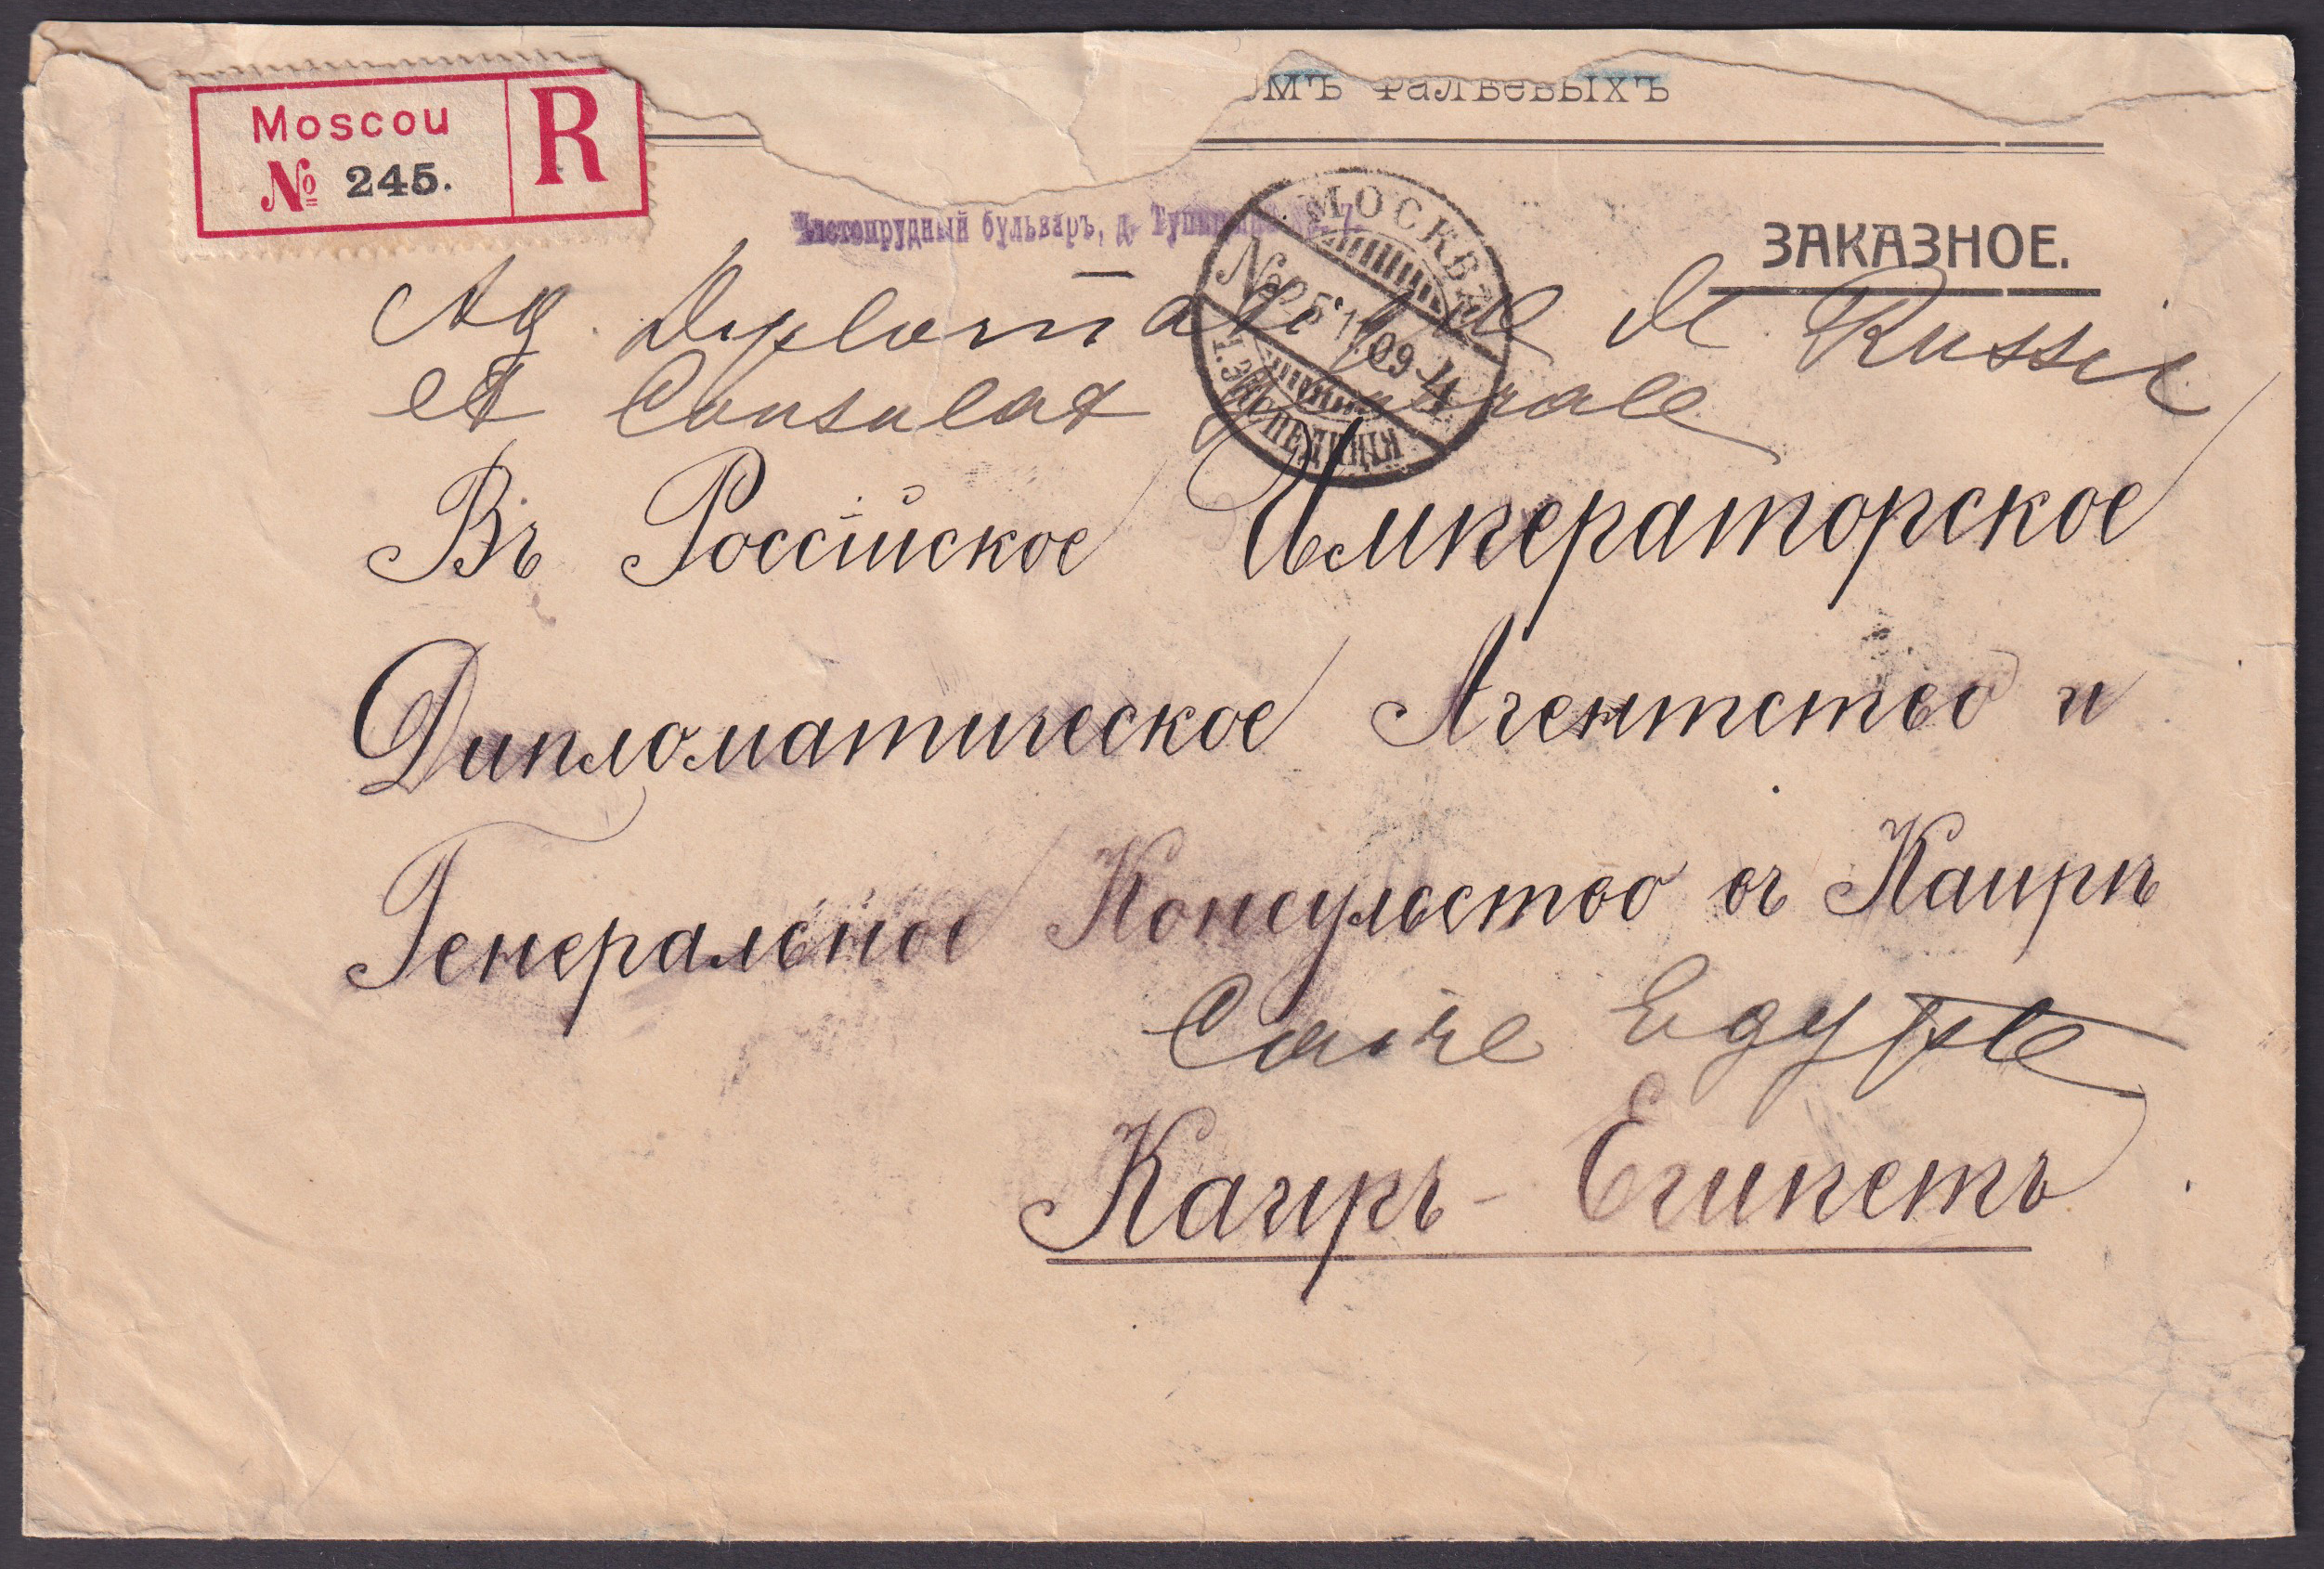 Moscou
№ 245.
R
ФАЛѢЕВЫХЪ
Чистопрудный бульваръ, д.
ЗАКАЗНОЕ.
МОСКВА
25 11 09
ЭКСПЕДИЦІЯ
Ag. Diplomatique de Russie
et Consulat Generale
Въ Россійское Императорское
Дипломатическое Агентство и
Генеральное Консульство въ Каирѣ
Caire Egypte
Каиръ - Египетъ